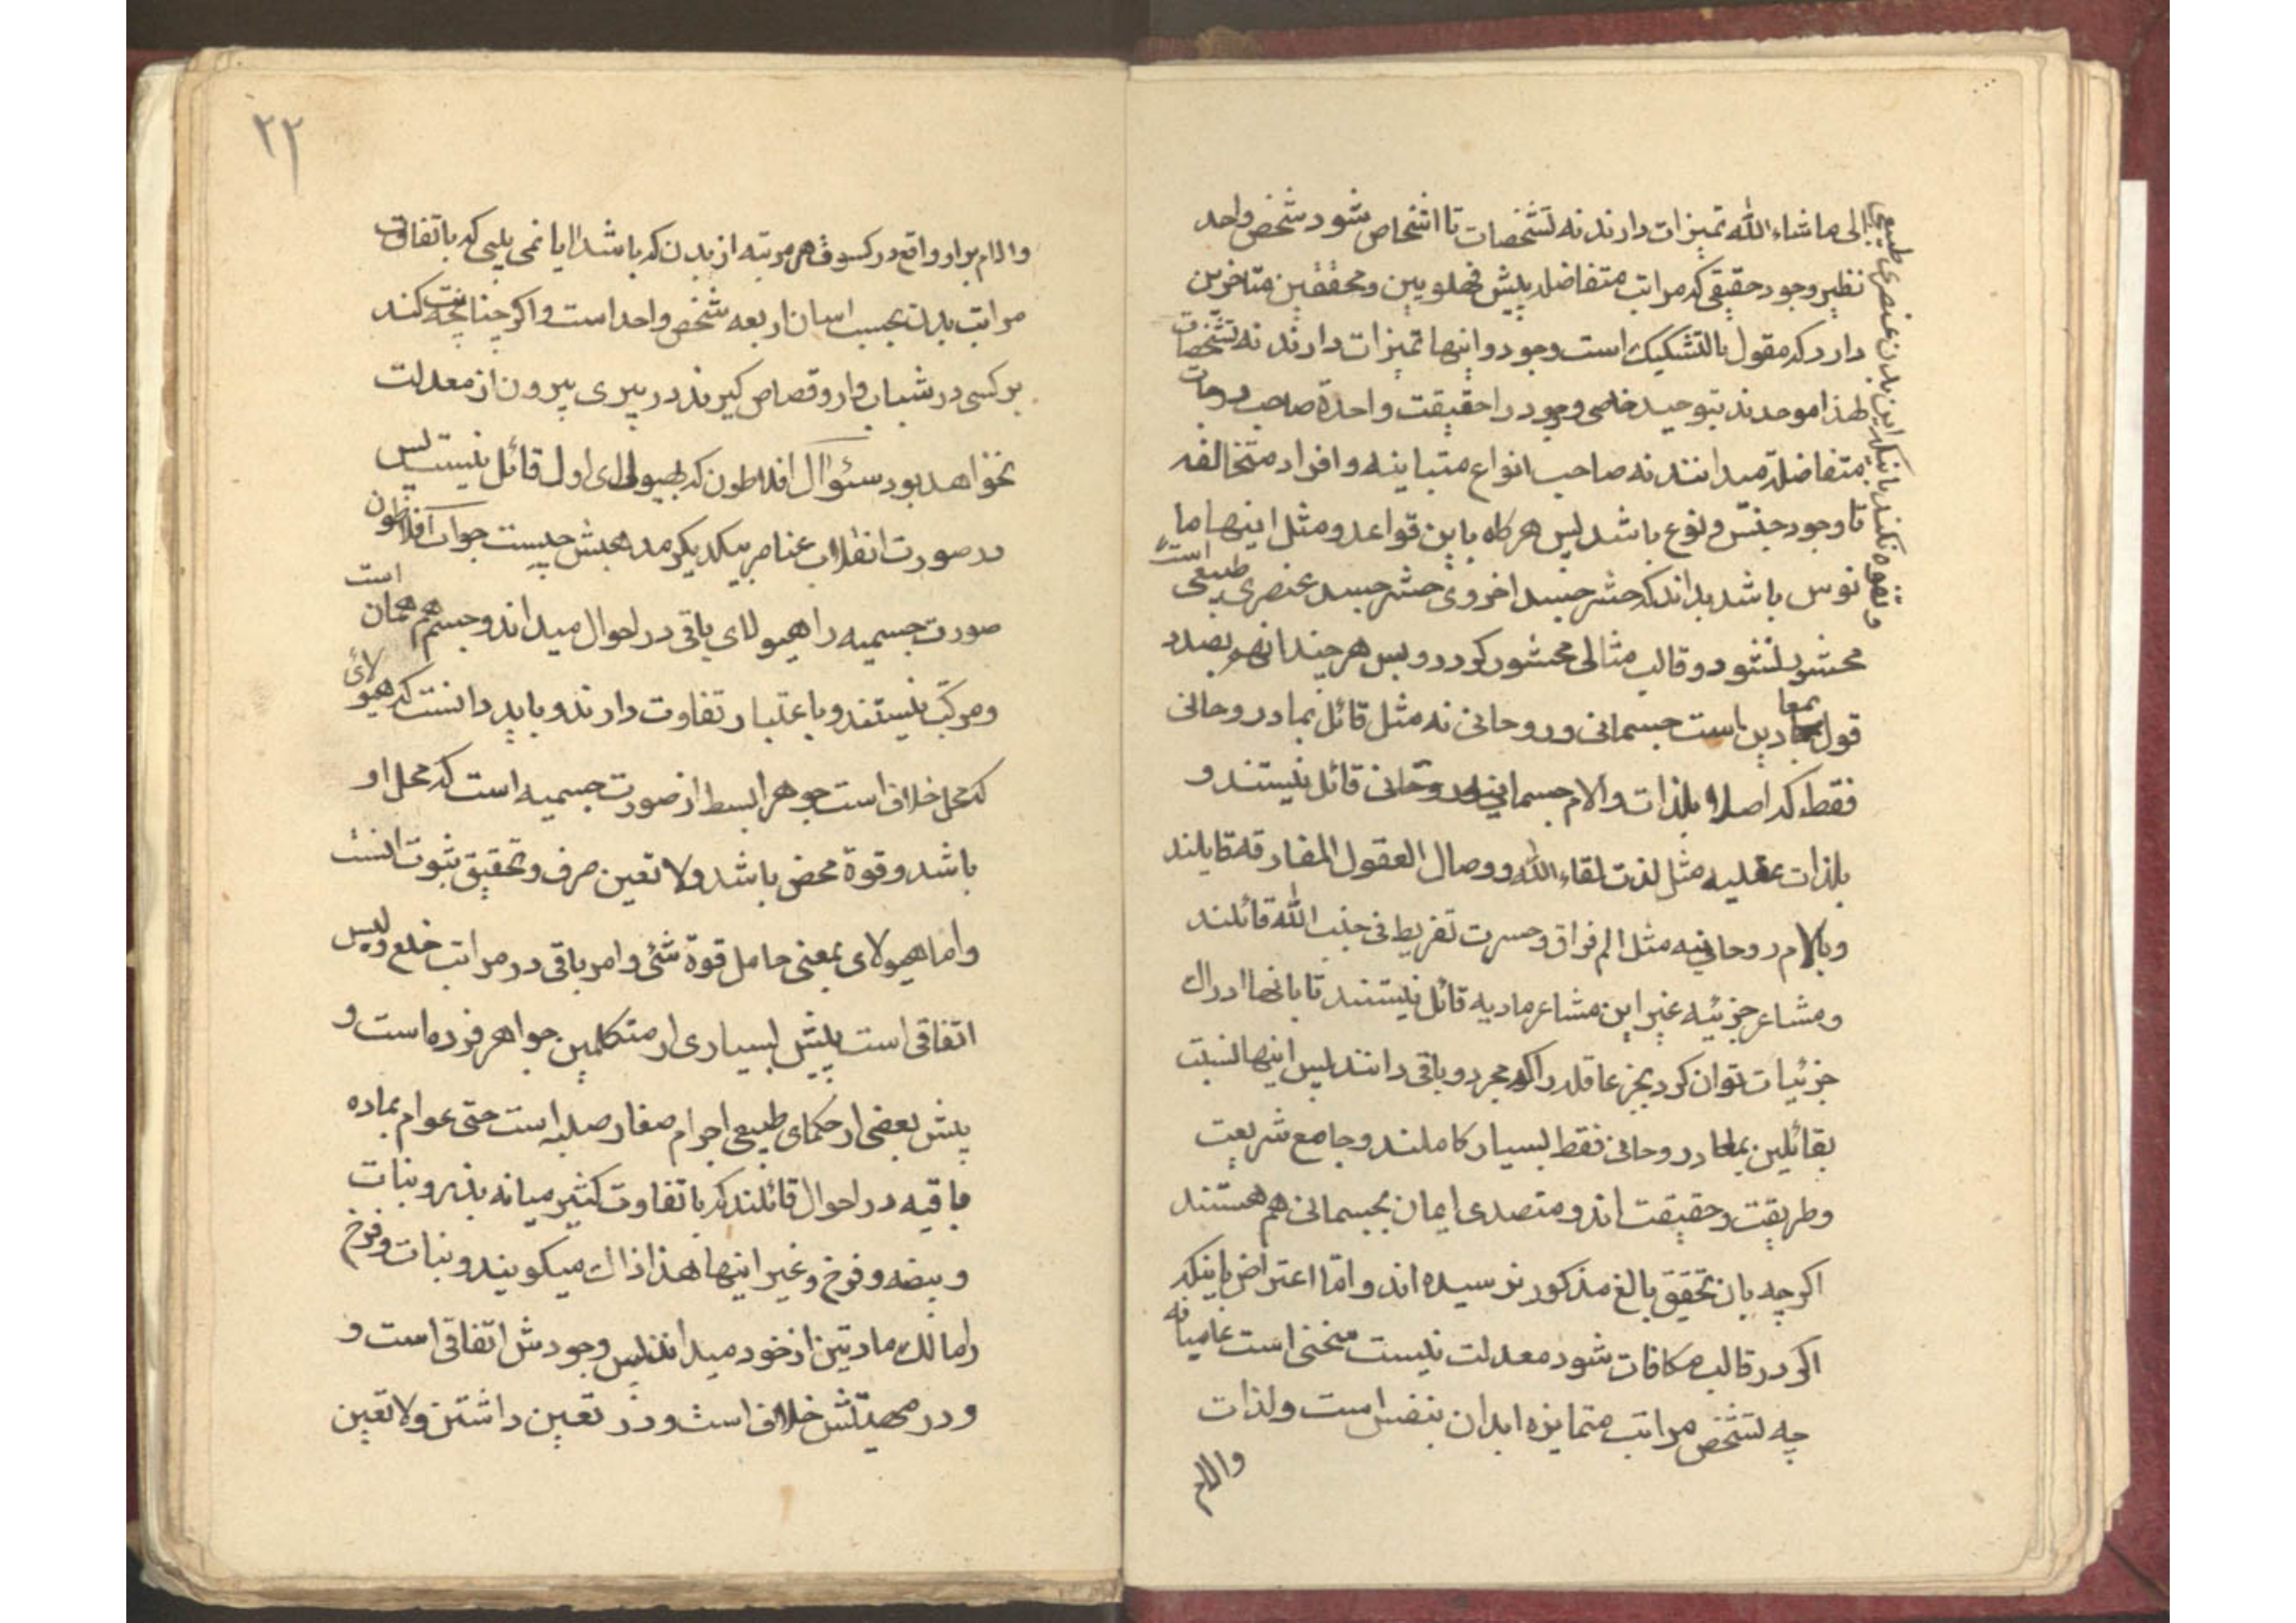 إلى ماشاء الله تمیزات دارند نه تشخصات تا اشخاص شود شخص واحد
نظیر وجود حقیقی که مراتب متفاضله پیش فهلویین و محققین متاخرین
دارد که مقول بالتشکیک است وجود و اینها تمیزات دارند نه تشخصات
لهذا موحدند بتوحید خاصی وجود را حقیقت واحدة صاحب درجات
متفاضلة میدانند نه صاحب انواع متباینه و افراد متخالفه
تا وجود جنس و نوع باشد پس هرکاه باین قواعد و مثل اینها ما
نوس باشد بداند که حشر جسد اخروی حشر جسد عنصری طبیعی است
محشور نشود و قالب مثالی محشور کردد و پس هرچند انهم بصدد
قول بمعادین است جسمانی و روحانی نه مثل قائل بمعاد روحانی
فقط که اصلا بلذات و آلام جسمانی قائل نیستند و
بلذات عقلیه مثل لذت لقاء الله و وصال العقول المفارقه قایلند
و بالام روحانیه مثل الم فراق و حسرت تفریط فی جنب الله قائلند
و مشاعر جزئیه غیر این مشاعر مادیه قائل نیستند تا بانها ادراک
جزئیات توان کرد بجز عاقله را که مجرد و باقی دانند پس اینها نسبت
بقائلین بمعاد روحانی فقط بسیار کاملند و جامع شریعت
و طریقت و حقیقت اند و متصدی ایمان بجسمانی هم هستند
اکرچه بان تحقیق بالغ مذکور نرسیده اند و امّا اعتراض باینکه
اکر در قالب مکافات شود معدلت نیست سخنی است عامیانه
چه تشخص مراتب متمایزه ابدان بنفس است و لذات
والام
و تفوه نکند باینکه این بدن عنصری طبیعی
۲۲
والام بر او واقع در کسوف هر مرتبه از بدن که باشد ایا نمی بینی که با تفاوت
مراتب بدن بحسب اسنان اربعه شخص واحد است و اکر جنایت کند
بر کسی در شباب و از او قصاص کیرند در پیری بیرون از معدلت
نخواهد بود سئوال افلاطون که بهیولای اول قائل نیست پس
در صورت انقلاب عناصر بیکدیکر مذهبش چیست جواب افلاطون
صورت جسمیه را هیولای باقی در احوال میداند و جسم هم همان است
و مرکب نیستند و باعتبار تفاوت دارند و باید دانست که هیولای
که محل خلاف است جوهر ابسط از صورت جسمیه است که محل او
باشد و قوة محض باشد و لا تعین صرف و تحقیق ثبوت انست
و اما هیولای بمعنی حامل قوة شئ و امر باقی در مراتب خلع و لبس
اتفاقی است پیش بسیاری از متکلمین جواهر فرده است و
پیش بعضی از حکمای طبیعی اجرام صغار صلبه است حتی عوام بماده
باقیه در احوال قائلند که با تفاوت کثیر میانه بذر و نبات
و بیضه و فرخ و غیر اینها هذا ذاک میکویند و نبات و فرخ
را مالک مادتین از خود میدانند پس وجودش اتفاقی است و
و در مهیتش خلاف است و در تعین داشتن و لا تعین